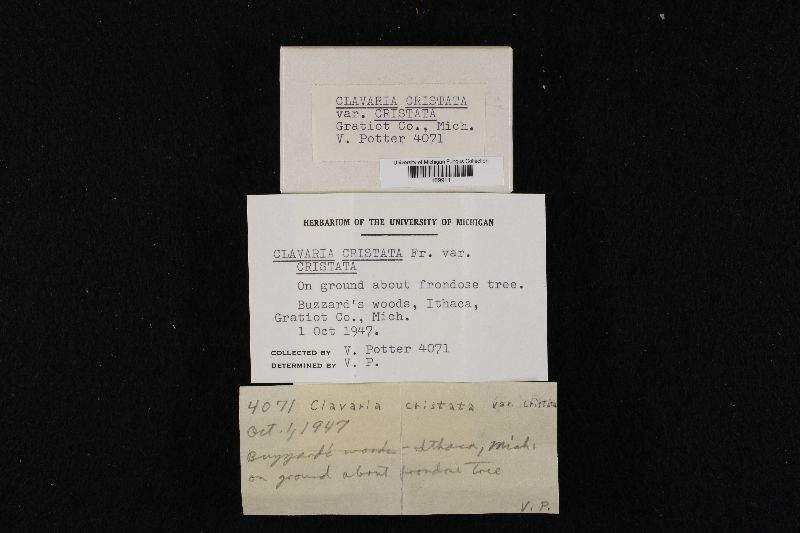 CLAVARIA CRISTATA
var. CRISTATA
Gratiot Co., Mich.
V. Potter 4071
University of Michigan Fungus Collection
HERBARIUM OF THE UNIVERSITY OF MICHIGAN
CLAVARIA CRISTATA Fr. var.
CRISTATA
On ground about frondose tree.
Buzzard's woods, Ithaca,
Gratiot Co., Mich.
1 Oct 1947.
COLLECTED BY V. Potter 4071
DETERMINED BY V. P.
4071 Clavaria cristata var. cristata
Oct. 1, 1947
Buzzard's woods - Ithaca, Mich.
on ground about frondose tree
V. P.